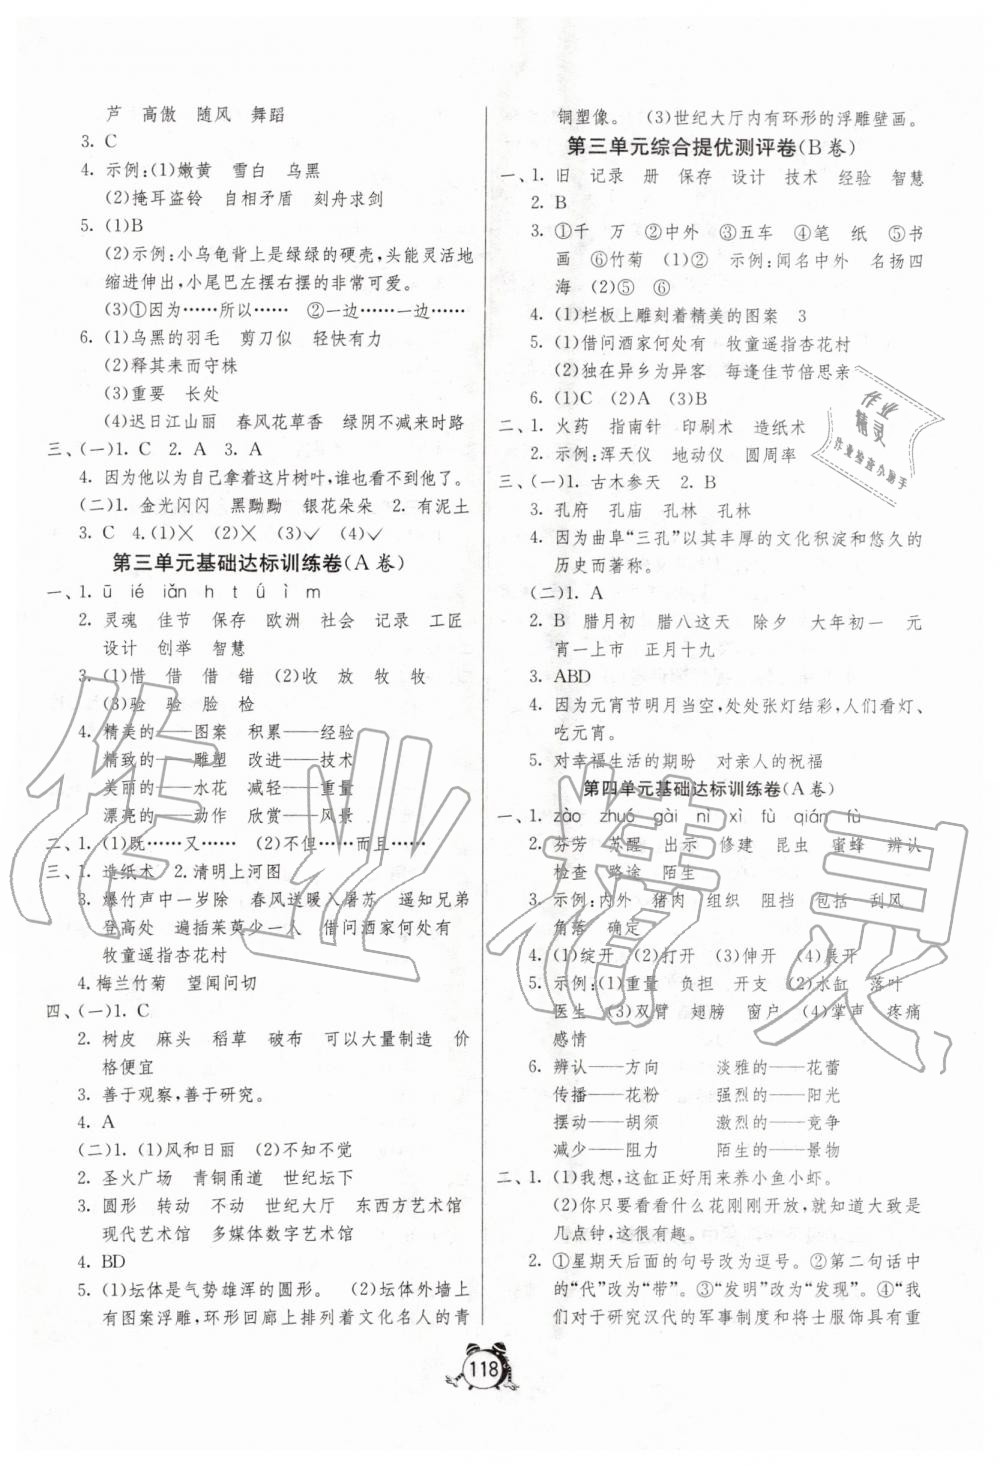 芦　高傲　随风　舞蹈
3. C
4. 示例:(1)嫩黄　雪白　乌黑
(2)掩耳盗铃　自相矛盾　刻舟求剑
5. (1)B
(2)示例:小乌龟背上是绿绿的硬壳,头能灵活地
缩进伸出,小尾巴左摆右摆的非常可爱。
(3)①因为……所以……　②一边……一边……
6. (1)乌黑的羽毛　剪刀似　轻快有力
(2)释其耒而守株
(3)重要　长处
(4)迟日江山丽　春风花草香　绿阴不减来时路
三、(一)1. C　2. A　3. A
4. 因为他以为自己拿着这片树叶,谁也看不到他了。
(二)1. 金光闪闪　黑黝黝　银花朵朵　2. 有泥土
3. C　4.(1)×　(2)×　(3)✓　(4)✓
第三单元基础达标训练卷(A卷)
一、1. ū　ié　iǎn　h　t　ú　ì　m
2. 灵魂　佳节　保存　欧洲　社会　记录　工匠
设计　创举　智慧
3. (1)惜　借　借　错　(2)收　放　牧　牧
(3)验　验　脸　检
4. 精美的——图案　积累——经验
精致的——雕塑　改进——技术
美丽的——水花　减轻——重量
漂亮的——动作　欣赏——风景
二、1. (1)既……又……　(2)不但……而且……
三、1. 造纸术　2. 清明上河图
3. 爆竹声中一岁除　春风送暖入屠苏　遥知兄弟
登高处　遍插茱萸少一人　借问酒家何处有
牧童遥指杏花村
4.梅兰竹菊　望闻问切
四、(一)1. C
2. 树皮　麻头　稻草　破布　可以大量制造　价
格便宜
3. 善于观察,善于研究。
4. A
(二)1. (1)风和日丽　(2)不知不觉
2. 圣火广场　青铜甬道　世纪坛下
3. 圆形　转动　不动　世纪大厅　东西方艺术馆
现代艺术馆　多媒体数字艺术馆
4. BD
5. (1)坛体是气势雄浑的圆形。　(2)坛体外墙上
有图案浮雕,环形回廊上排列着文化名人的青
铜塑像。　(3)世纪大厅内有环形的浮雕壁画。
第三单元综合提优测评卷(B卷)
一、1. 旧　记录　册　保存　设计　技术　经验　智慧
2. B
3. ①千　万　②中外　③五车　④笔　纸　⑤书
画　⑥竹菊　(1)②　示例:闻名中外　名扬四
海　(2)⑤　⑥
4. (1)栏板上雕刻着精美的图案　3
5. (1)借问酒家何处有　牧童遥指杏花村
(2)独在异乡为异客　每逢佳节倍思亲
6. (1)C　(2)A　(3)B
二、1. 火药　指南针　印刷术　造纸术
2. 示例:浑天仪　地动仪　圆周率
三、(一)1. 古木参天　2. B
3. 孔府　孔庙　孔林　孔林
4. 因为曲阜“三孔”以其丰厚的文化积淀和悠久的
历史而著称。
(二)1. A
2. B　腊月初　腊八这天　除夕　大年初一　元
宵一上市　正月十九
3. ABD
4. 因为元宵节明月当空,处处张灯结彩,人们看灯、
吃元宵。
5. 对幸福生活的期盼　对亲人的祝福
第四单元基础达标训练卷(A卷)
一、1. zào　zhuó　gài　nì　xì　fù　qián　fù
2. 芬芳　苏醒　出示　修建　昆虫　蜜蜂　辨认
检查　路途　陌生
3. 示例:内外　猪肉　组织　阻挡　包括　刮风
角落　确定
4. (1)绽开　(2)打开　(3)伸开　(4)展开
5. 示例:(1)重量　负担　开支　(2)水缸　落叶
医生　(3)双臂　翅膀　窗户　(4)掌声　疼痛
感情
6. 辨认——方向　淡雅的——花蕾
传播——花粉　强烈的——阳光
摆动——胡须　激烈的——竞争
减少——阻力　陌生的——景物
二、1. (1)我想,这缸正好用来养小鱼小虾。
(2)你只要看看什么花刚刚开放,就知道大致是
几点钟,这很有趣。
2. ①星期天后面的句号改为逗号。②第二句话中
的“代”改为“带”。③“发明”改为“发现”。④“我
们对于研究汉代的军事制度和将士服饰具有重
118
作业精灵
作业
精灵
作业检查小助手